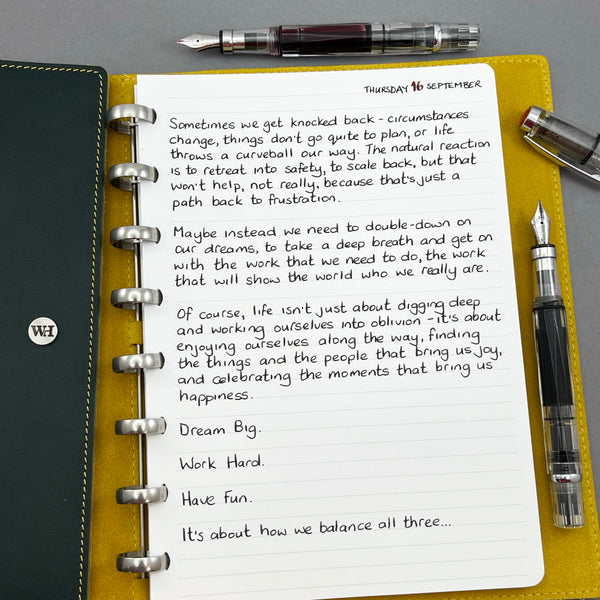 THURSDAY 16 SEPTEMBER
Sometimes we get knocked back - circumstances
change, things don't go quite to plan, or life
throws a curveball our way. The natural reaction
is to retreat into safety, to scale back, but that
won't help, not really, because that's just a
path back to frustration.
Maybe instead we need to double-down on
our dreams, to take a deep breath and get on
with the work that we need to do, the work
that will show the world who we really are.
Of course, life isn't just about digging deep
and working ourselves into oblivion - it's about
enjoying ourselves along the way, finding
the things and the people that bring us joy,
and celebrating the moments that bring us
happiness.
Dream Big.
Work Hard.
Have Fun.
It's about how we balance all three...
WH